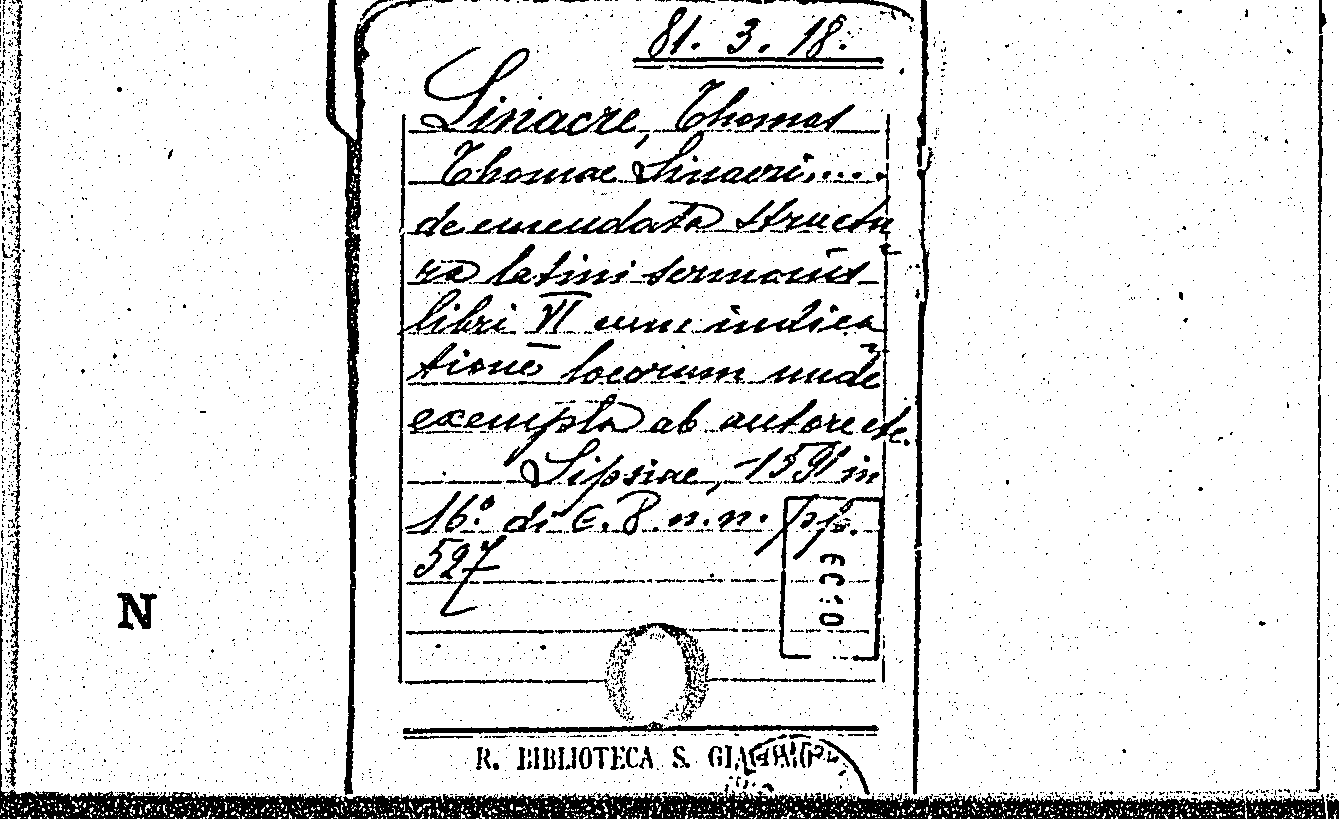 81. 3. 18.
Linacre, Thomas
Thomae Linacri....
de emendata structu
ra latini sermonis
libri VI cum indica
tione locorum unde
exempla ab autore etc.
Lipsiae, 1591 in
16.º di C. 8 n.n. pp.
527
N
R. BIBLIOTECA S. GIACOMO